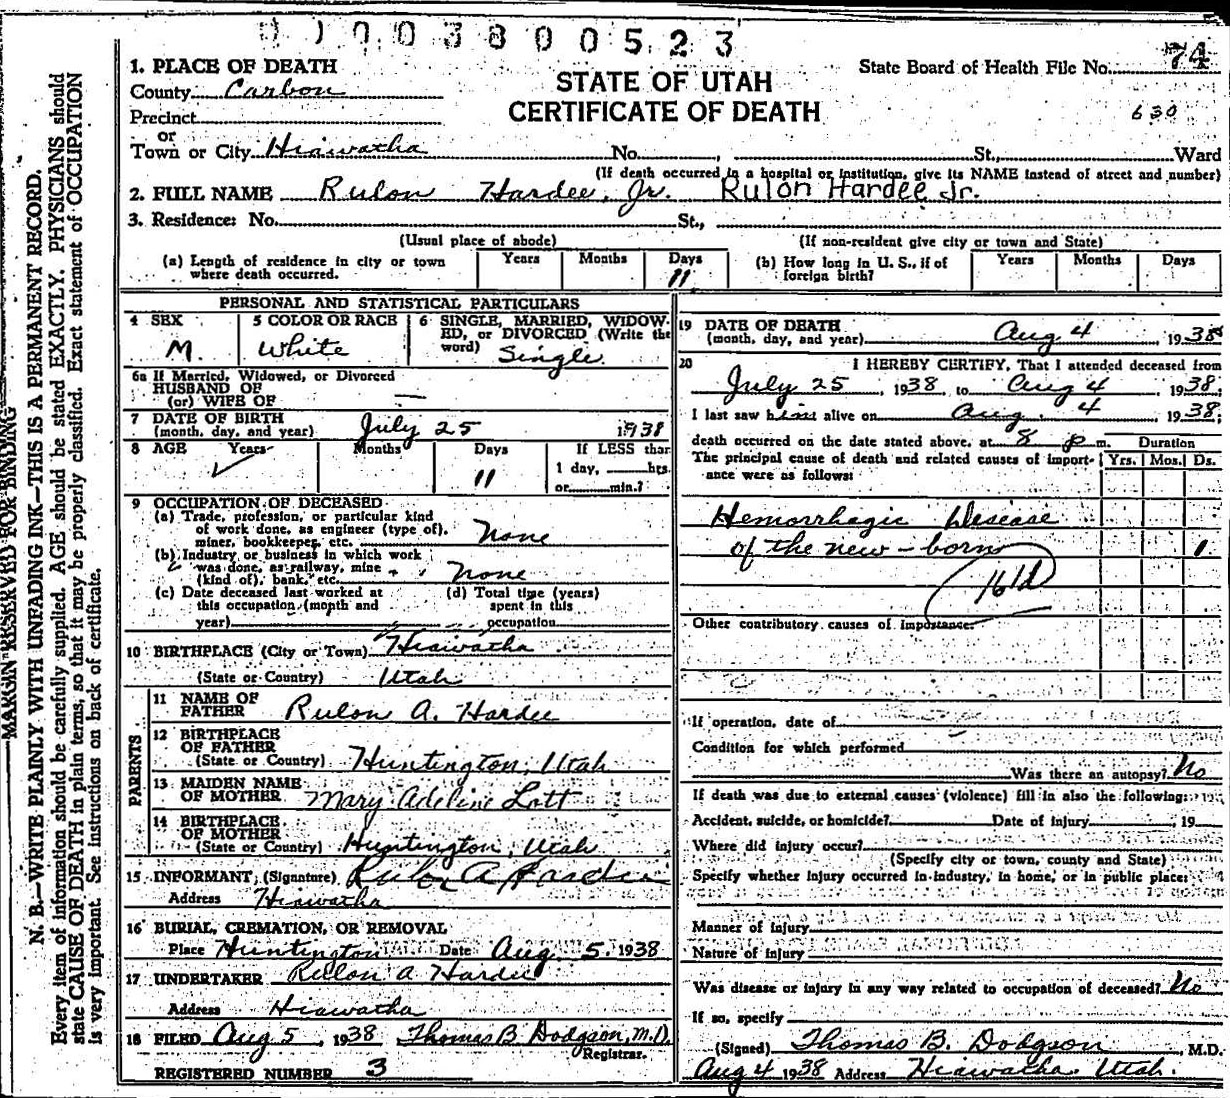 0100380052 3
1. PLACE OF DEATH
STATE OF UTAH
CERTIFICATE OF DEATH
State Board of Health File No. 74
County Carbon
630
Precinct
or
Town or City Hiawatha No. , St., Ward
(If death occurred in a hospital or institution, give its NAME instead of street and number)
2. FULL NAME Rulon Hardee, Jr. Rulon Hardee Jr.
3. Residence: No. St.,
(Usual place of abode) (If non-resident give city or town and State)
(a) Length of residence in city or town where death occurred. Years Months Days 11
(b) How long in U. S., if of foreign birth? Years Months Days
PERSONAL AND STATISTICAL PARTICULARS
4 SEX M.
5 COLOR OR RACE White
6 SINGLE, MARRIED, WIDOWED, or DIVORCED (Write the word) Single
6a If Married, Widowed, or Divorced
HUSBAND OF
(or) WIFE OF —
7 DATE OF BIRTH
(month, day, and year) July 25 1938
8 AGE Years Months Days 11 If LESS than
1 day, hrs.
or min.?
9 OCCUPATION OF DECEASED
(a) Trade, profession, or particular kind
of work done, as engineer (type of),
miner, bookkeeper, etc. None
(b) Industry or business in which work
was done, as railway, mine
(kind of), bank, etc. none
(c) Date deceased last worked at
this occupation (month and
year)
(d) Total time (years)
spent in this
occupation
10 BIRTHPLACE (City or Town) Hiawatha
(State or Country) Utah
PARENTS
11 NAME OF
FATHER Rulon A. Hardee
12 BIRTHPLACE
OF FATHER
(State or Country) Huntington, Utah
13 MAIDEN NAME
OF MOTHER Mary Adeline Lott
14 BIRTHPLACE
OF MOTHER
(State or Country) Huntington, Utah
15 INFORMANT, (Signature) Rulon A Hardee
Address Hiawatha
16 BURIAL, CREMATION, OR REMOVAL
Place Huntington Date Aug 5. 1938
17 UNDERTAKER Rulon A Hardee
Address Hiawatha
18 FILED Aug 5, 1938 Thomas B Dodgson, M.D.
Registrar.
REGISTERED NUMBER 3
19 DATE OF DEATH
(month, day, and year) Aug 4, 1938
20 I HEREBY CERTIFY, That I attended deceased from
July 25, 1938, to Aug 4, 1938;
I last saw him alive on Aug. 4, 1938;
death occurred on the date stated above, at 8 p m. Duration
The principal cause of death and related causes of importance were as follows: Yrs. Mos. Ds.
Hemorrhagic Disease
of the new-born 1.
161d
Other contributory causes of importance:
If operation, date of
Condition for which performed
Was there an autopsy? No
If death was due to external causes (violence) fill in also the following:
Accident, suicide, or homicide? Date of injury , 19
Where did injury occur?
(Specify city or town, county and State)
Specify whether injury occurred in industry, in home, or in public place:
Manner of injury
Nature of injury
Was disease or injury in any way related to occupation of deceased? No
If so, specify
(Signed) Thomas B. Dodgson, M.D.
Aug 4 1938 Address Hiawatha Utah.
MARGIN RESERVED FOR BINDING
N. B.—WRITE PLAINLY WITH UNFADING INK—THIS IS A PERMANENT RECORD.
Every item of information should be carefully supplied. AGE should be stated EXACTLY. PHYSICIANS should
state CAUSE OF DEATH in plain terms, so that it may be properly classified. Exact statement of OCCUPATION
is very important. See instructions on back of certificate.